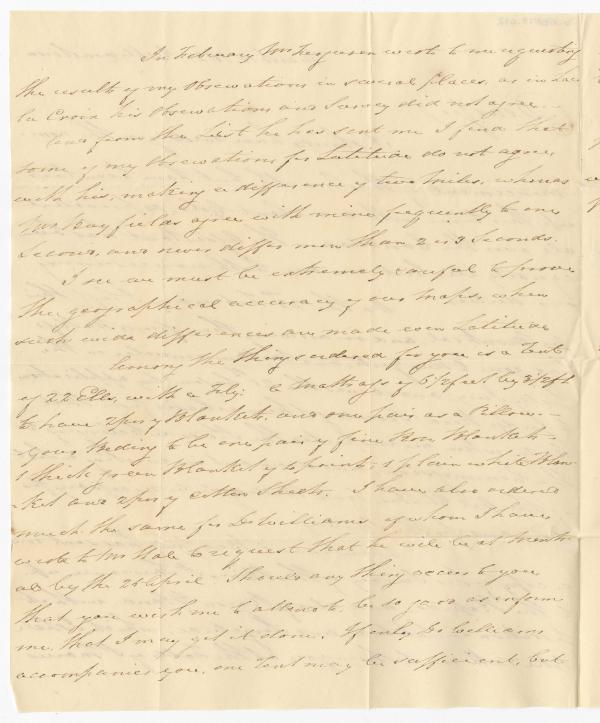 In February Mr Ferguson wrote to me requesting
the results of my Observations in several places, as in Lac
la Croix his Observations and Survey did not agree
and from the List he has sent me I find that
some of my Observations for Latitude do not agree
with his, making a difference of two miles, whereas
Mr Bayfields agree with mine frequently to one
Second, and never differ more than 2 or 3 Seconds.
I see we must be extremely careful to prove
the geographical accuracy of our maps, when
such wide differences are made even Latitude
Among the things ordered for you is a Tent
of 22 Ells, with a Fly: a Mattrass of 6 1/2 feet by 3 1/2 ft
to have 2 prs of Blankets and one pair as a Pillow.
Your Beding to be one pair of fine Blankets
1 thick green Blanket of points, 1 plain white Blan
ket and 2 prs of cotton Sheets. I have also ordered
much the same for Dr Williams, of whom I have
wrote to Mr Hale to request that he will be at Montre
al by the 26 April. Should any thing occur to you
that you wish me to attend to, be so good as inform
me, that I may get it done. If only Dr Williams
accompanies you, one Tent may be sufficient, but